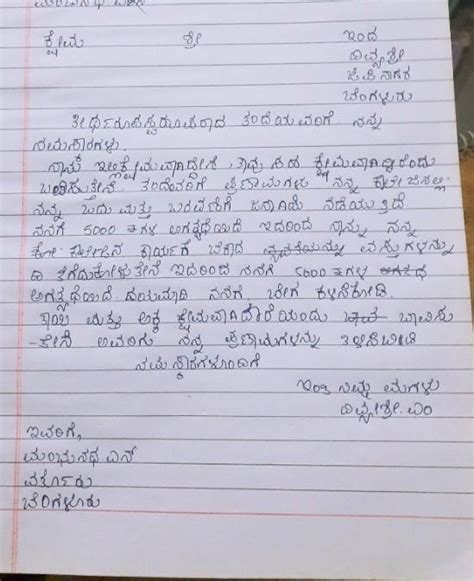 ಕ್ಷೇಮ ಶ್ರೀ ಇಂದ
ದಿವ್ಯಶ್ರೀ
ಜೆ.ಪಿ ನಗರ
ಬೆಂಗಳೂರು
ತೀರ್ಥರೂಪಸ್ವರೂಪರಾದ ತಂದೆಯವರಿಗೆ ನನ್ನ
ನಮಸ್ಕಾರಗಳು.
ನಾನು ಇಲ್ಲಿ ಕ್ಷೇಮವಾಗಿದ್ದೇನೆ, ತಾವು ಸಹ ಕ್ಷೇಮವಾಗಿದ್ದೀರೆಂದು
ಬಯಸುತ್ತೇನೆ ತಂದೆಯವರಿಗೆ ಪ್ರಣಾಮಗಳು ನನ್ನ ಕಾಲೇಜಿನಲ್ಲಿ
ನನ್ನ ಓದು ಮತ್ತು ಬರವಣಿಗೆ ಚೆನ್ನಾಗಿ ನಡೆಯುತ್ತಿದೆ
ನನಗೆ 5000 ಗಳ ಅಗತ್ಯವಿದೆ ಇದರಿಂದ ನಾನು ನನ್ನ
ಕಾಲೇಜಿನ ಕಾರ್ಯಕ್ಕೆ ಬೇಕಾದ ವಸ್ತುಗಳನ್ನು
ತೆಗೆದುಕೊಳ್ಳುತ್ತೇನೆ ಇದರಿಂದ ನನಗೆ 5000 ಗಳ
ಅಗತ್ಯವಿದೆ. ದಯಮಾಡಿ ನನಗೆ ಬೇಗ ಕಳಿಸಿಕೊಡಿ.
ತಾಯಿ ಮತ್ತು ಅಕ್ಕ ಕ್ಷೇಮವಾಗಿದ್ದಾರೆಯೆಂದು ಭಾವಿಸು
-ತ್ತೇನೆ ಅವರಿಗೂ ನನ್ನ ಪ್ರಣಾಮಗಳನ್ನು ತಿಳಿಸಬೇಕು
ನಮಸ್ಕಾರಗಳೊಂದಿಗೆ
ಇಂತಿ ನಿಮ್ಮ ಮಗಳು
ದಿವ್ಯಶ್ರೀ. ಎಂ
ಇವರಿಗೆ,
ಮಂಜುನಾಥ ಎನ್
ವರ್ತೂರು
ಬೆಂಗಳೂರು